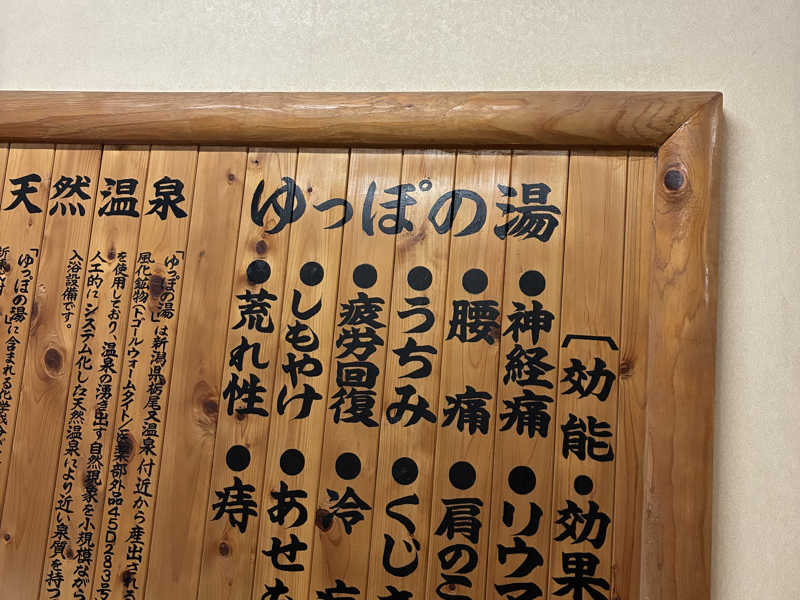 ゆっぽの湯
天然温泉
〔効能・効果
●神経痛 ●リウマ
●腰痛 ●肩のこ
●うちみ ●くじ
●疲労回復 ●冷
●しもやけ ●あせ
●荒れ性 ●痔
「ゆっぽの湯」は新潟県栃尾又温泉付近から産出される
風化鉱物(トゴールウォームタイト/医薬部外品45D283号
を使用しており、温泉の湧き出す自然現象を小規模ながら
人工的にシステム化した天然温泉により近い泉質を持つ
入浴設備です。
「ゆっぽの湯」に含まれる化学成分が